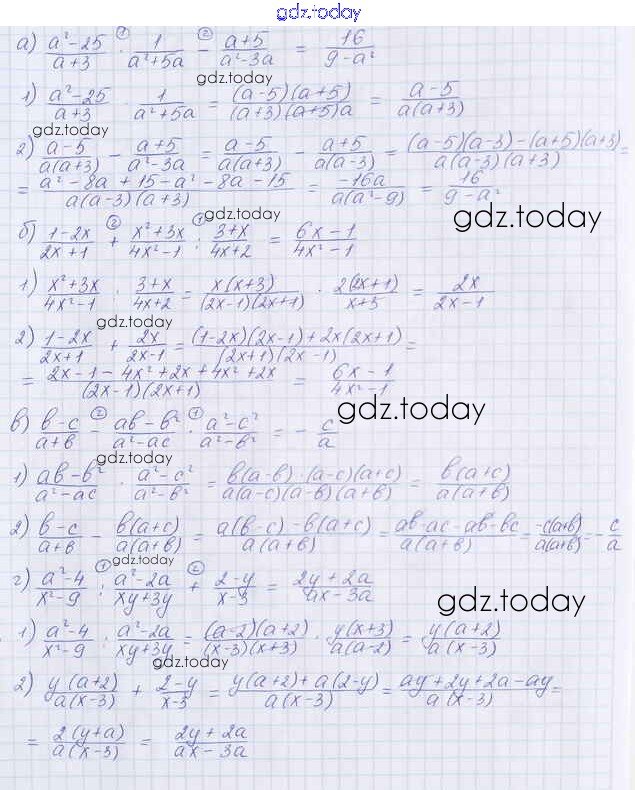 gdz.today
а) (a²-25)/(a+3) · 1/(a²+5a) - (a+5)/(a²-3a) = 16/(9-a²)
gdz.today
1) (a²-25)/(a+3) · 1/(a²+5a) = (a-5)(a+5)/(a+3)(a+5)a = (a-5)/a(a+3)
gdz.today
2) (a-5)/a(a+3) - (a+5)/(a²-3a) = (a-5)/a(a+3) - (a+5)/a(a-3) = (a-5)(a-3)-(a+5)(a+3)/a(a-3)(a+3) =
= (a²-8a+15-a²-8a-15)/a(a-3)(a+3) = -16a/a(a²-9) = 16/(9-a²)
gdz.today
б) (1-2x)/(2x+1) + (x²+3x)/(4x²-1) : (3+x)/(4x+2) = (6x-1)/(4x²-1)
1) (x²+3x)/(4x²-1) : (3+x)/(4x+2) = x(x+3)/(2x-1)(2x+1) · 2(2x+1)/(x+3) = 2x/(2x-1)
gdz.today
2) (1-2x)/(2x+1) + 2x/(2x-1) = (1-2x)(2x-1)+2x(2x+1)/(2x+1)(2x-1) =
= (2x-1-4x²+2x+4x²+2x)/(2x-1)(2x+1) = (6x-1)/(4x²-1)
gdz.today
в) (b-c)/(a+b) - (ab-b²)/(a²-ac) · (a²-c²)/(a²-b²) = - c/a
gdz.today
1) (ab-b²)/(a²-ac) · (a²-c²)/(a²-b²) = b(a-b)·(a-c)(a+c)/a(a-c)(a-b)(a+b) = b(a+c)/a(a+b)
2) (b-c)/(a+b) - b(a+c)/a(a+b) = a(b-c)-b(a+c)/a(a+b) = (ab-ac-ab-bc)/a(a+b) = -c(a+b)/a(a+b) = - c/a
gdz.today
г) (a²-4)/(x²-9) : (a²-2a)/(xy+3y) + (2-y)/(x-3) = (2y+2a)/(ax-3a)
gdz.today
1) (a²-4)/(x²-9) : (a²-2a)/(xy+3y) = (a-2)(a+2)/(x-3)(x+3) · y(x+3)/a(a-2) = y(a+2)/a(x-3)
gdz.today
2) y(a+2)/a(x-3) + (2-y)/(x-3) = y(a+2)+a(2-y)/a(x-3) = (ay+2y+2a-ay)/a(x-3) =
= 2(y+a)/a(x-3) = (2y+2a)/(ax-3a)